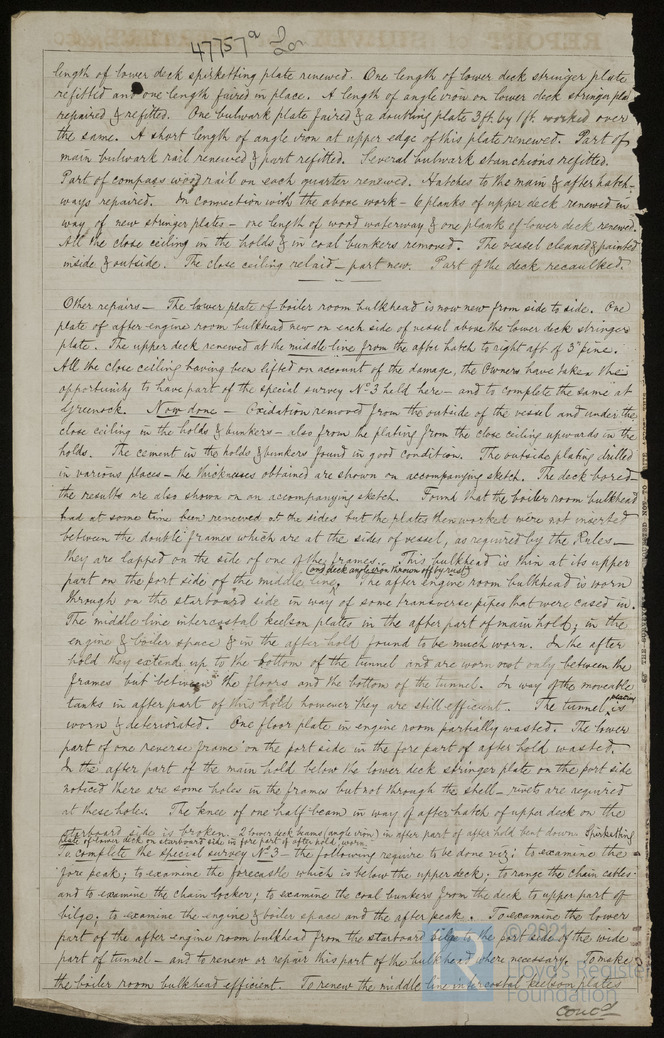 47757a
length of lower deck spirketting plate renewed. One length of lower deck stringer plate
refitted and one length faired in place. A length of angle iron on lower deck stringer plat
repaired & refitted. One bulwark plate faired & a doubling plate 3ft. by 1ft. worked over
the same. A short length of angle iron at upper edge of this plate renewed. Part of
main bulwark rail renewed & part refitted. Several bulwark stanchions refitted.
Part of compass wood rail on each quarter renewed. Hatches to the main & after hatch-
ways repaired. In connection with the above work - 6 planks of upper deck renewed in
way of new stringer plates - one length of wood waterway & one plank of lower deck renewed.
All the close ceiling in the holds & in coal bunkers removed. The vessel cleaned & painted
inside & outside. The close ceiling relaid - part new. Part of the deck recaulked.
Other repairs - The lower plate of boiler room bulkhead is now new from side to side. One
plate of after engine room bulkhead new on each side of vessel above the lower deck stringer
plate. The upper deck renewed at the middle line from the after hatch to right aft of 3" pine.
All the close ceiling having been lifted on account of the damage, the Owners have taken the
opportunity to have part of the special survey No 3 held here - and to complete the same at
Greenock. Now done - Oxidation removed from the outside of the vessel and under the
close ceiling in the holds & bunkers - also from the plating from the close ceiling upwards in the
holds. The cement in the holds & bunkers found in good condition. The outside plating drilled
in various places - the thicknesses obtained are shown on accompanying sketch. The deck bored -
the results are also shown on an accompanying sketch. Found that the boiler room bulkhead
had at some time been renewed at the sides but the plates then worked were not inserted
between the double frames which are at the sides of vessel, as required by the Rules -
they are lapped on the side of one of the frames. This bulkhead is thin at its upper
part on the port side of the middle line, (and deck angle iron thrown off by rust) The after engine room bulkhead is worn
through on the starboard side in way of some transverse pipes that were cased in.
The middle line intercostal keelson plates in the after part of main hold; in the
engine & boiler space & in the after hold found to be much worn. In the after
hold they extend up to the bottom of the tunnel and are worn not only between the
frames but between the floors and the bottom of the tunnel. In way of the moveable
tanks in after part of this hold however they are still efficient. The tunnel plating is
worn & deteriorated. One floor plate in engine room partially wasted. The lower
part of one reverse frame on the port side in the fore part of after hold wasted.
In the after part of the main hold below the lower deck stringer plate on the port side
noticed there are some holes in the frames but not through the shell - rivets are required
at these holes. The knee of one half beam in way of after hatch of upper deck on the
starboard side is broken. 2 lower deck beams (angle iron) in after part of after hold bent down. Spirketting
plate of lower deck on starboard side in fore part of hold, worn.
complete the special survey No 3 - the following require to be done viz: to examine the
fore peak; to examine the forecastle which is below the upper deck; to range the chain cables
and to examine the chain locker; to examine the coal bunkers from the deck to upper part of
bilge; to examine the engine & boiler space and the after peak. To examine the lower
part of the after engine room bulkhead from the starboard bilge to the port side of the wide
part of tunnel - and to renew or repair this part of the bulkhead where necessary. To make
the boiler room bulkhead efficient. To renew the middle line intercostal keelson plates
© 2021
Lloyd's Register
Foundation